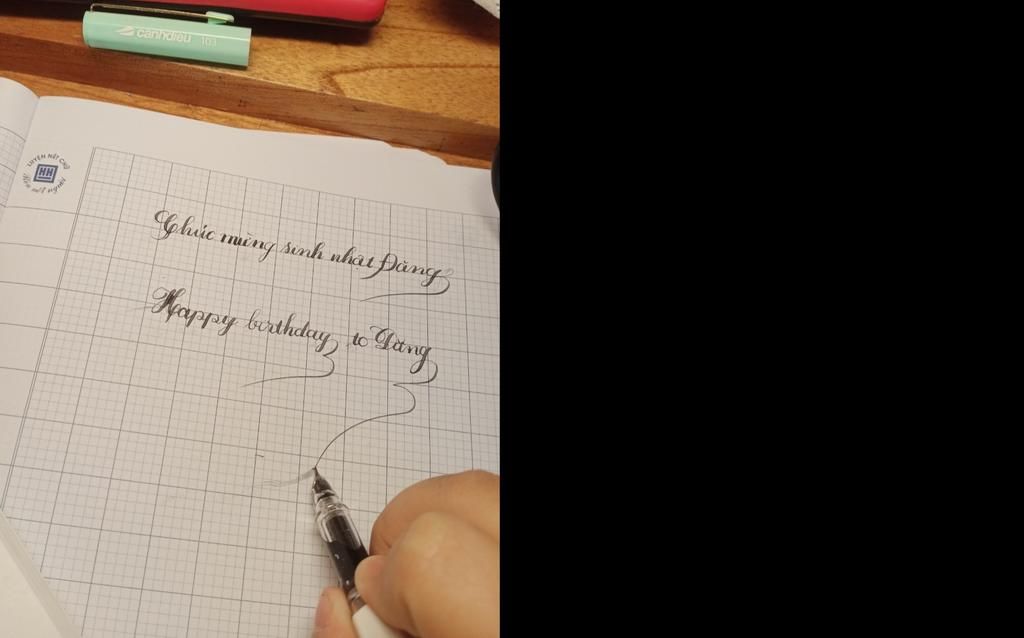 canhdieu 103
LUYỆN NÉT CHỮ
HH
Rèn nết người
Chúc mừng sinh nhật Đăng
Happy birthday to Đăng